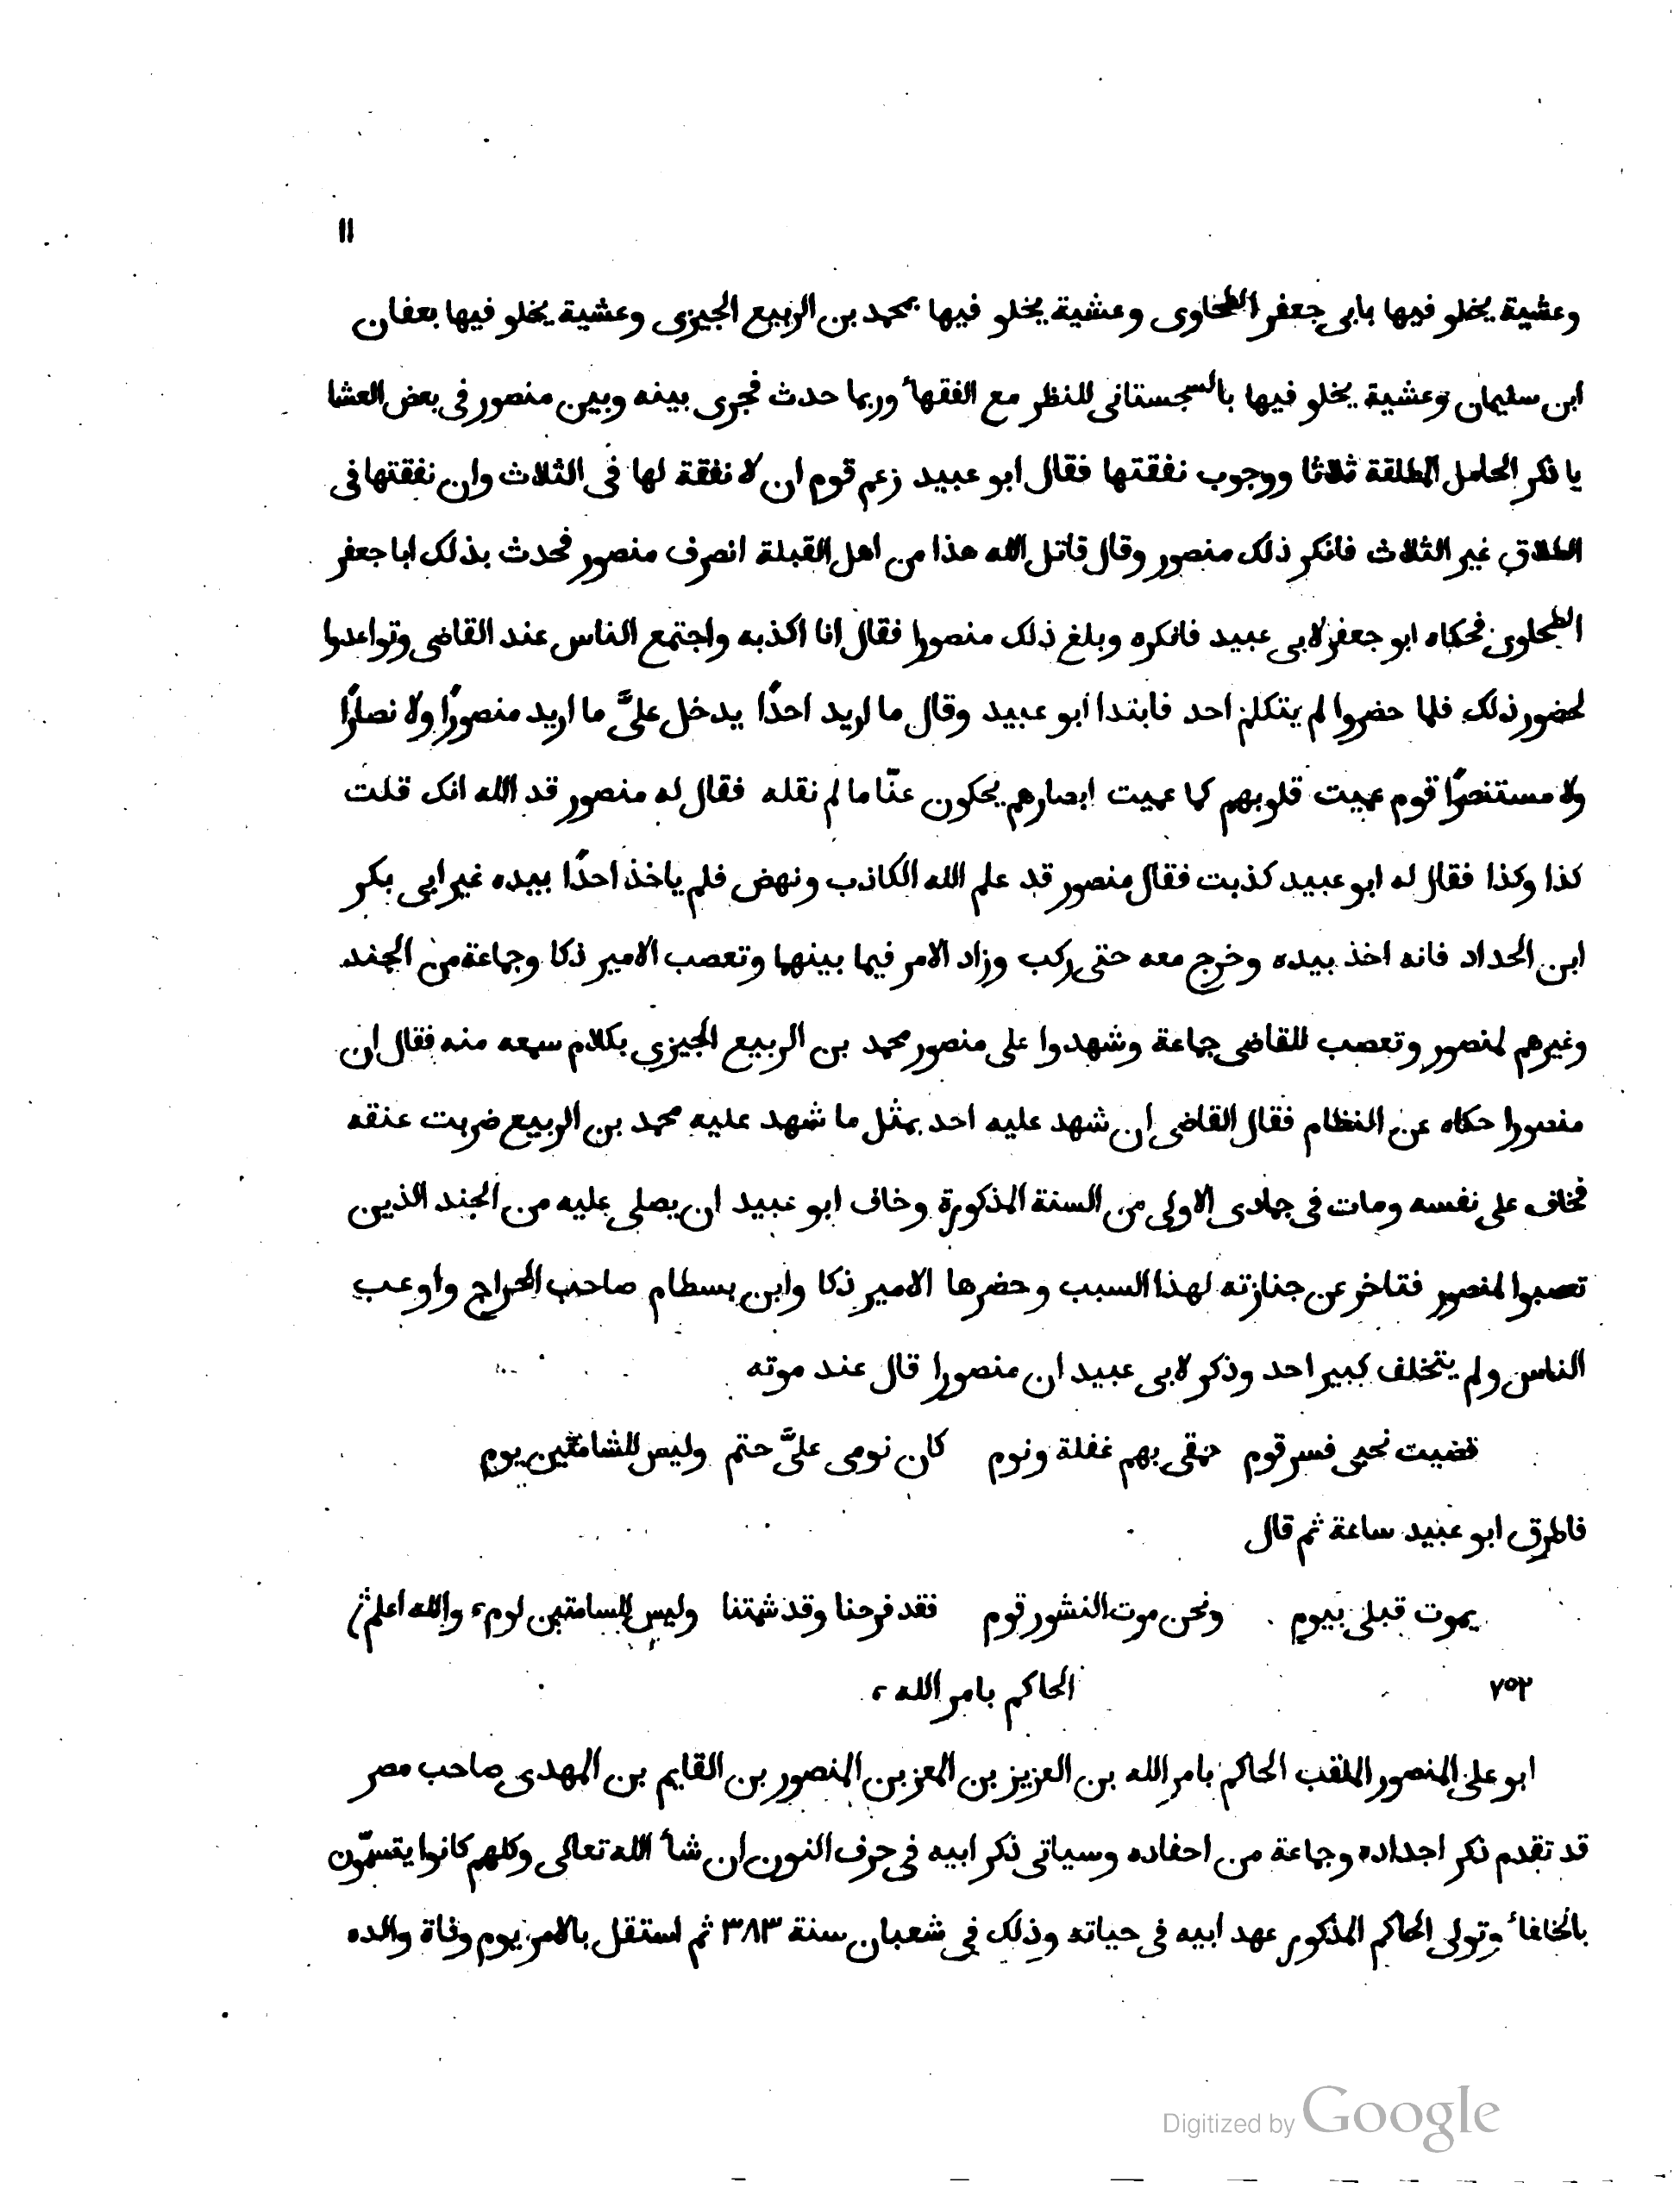 ١١
وعشية يخلو فيها بابى جعفر الطحاوى وعشية يخلو فيها بمحمد بن الربيع الجيزى وعشية يخلو فيها بعفان
ابن سليمان وعشية يخلو فيها بالسجستانى للنظر مع الفقهأ وربما حدث فجرى بينه وبين منصور فى بعض العشا
يا ذكر الحامل المطلقة ثلاثا ووجوب نفقتها فقال ابو عبيد زعم قوم ان لا نفقة لها فى الثلاث وان نفقتها فى
الطلاق غير الثلاث فانكر ذلك منصور وقال قاتل الله هذا من اهل القبلة انصرف منصور فحدث بذلك ابا جعفر
الطحاوى فحكاه ابو جعفر لابى عبيد فانكره وبلغ ذلك منصورا فقال انا اكذبه واجتمع الناس عند القاضى وتواعدوا
لحضور ذلك فلما حضروا لم يتكلم احد فابتدا ابو عبيد وقال ما اريد احدًا يدخل علىَّ ما اريد منصورًا ولا نصارًا
ولا مستنصرًا قوم عميت قلوبهم كما عميت ابصارهم يحكون عنّا ما لم نقله فقال له منصور قد الله انك قلت
كذا وكذا فقال له ابو عبيد كذبت فقال منصور قد علم الله الكاذب ونهض فلم ياخذ احدًا بيده غير ابى بكر
ابن الحداد فانه اخذ بيده وخرج معه حتى ركب وزاد الامر فيما بينهما وتعصب الامير ذكا وجماعة من الجند
وغيرهم لمنصور وتعصب للقاضى جماعة وشهدوا على منصور محمد بن الربيع الجيزى بكلام سمعه منه فقال ان
منصورا حكاه عن النظام فقال القاضى ان شهد عليه احد بمثل ما شهد عليه محمد بن الربيع ضربت عنقه
فخاف على نفسه ومات فى جمادى الاولى من السنة المذكورة وخاف ابو عبيد ان يصلى عليه من الجند الذين
تعصبوا لمنصور فتاخر عن جنازته لهذا السبب وحضرها الامير ذكا وابن بسطام صاحب الخراج واوعب
الناس ولم يتخلف كبير احد وذكر لابى عبيد ان منصورا قال عند موته
قضيت نحبى فسر قوم حمقى بهم غفلة ونوم كان نومى علىَّ حتم وليس للشامتين يوم
فاطرق ابو عبيد ساعة ثم قال
يموت قبلى بيوم ونحن موت النشور قوم فقد فرحنا وقد شمتنا وليس للسامتين لوم، والله اعلم
٧٥٢ الحاكم بامر الله،
ابو على المنصور الملقب الحاكم بامر الله بن العزيز بن المعز بن المنصور بن القايم بن المهدى صاحب مصر
قد تقدم ذكر اجداده وجماعة من احفاده وسياتى ذكر ابيه فى حرف النون ان شأ الله تعالى وكلهم كانوا يتسمّون
بالخلفأ وتولى الحاكم المذكور عهد ابيه فى حياته وذلك فى شعبان سنة ٣٨٣ ثم استقل بالامر يوم وفاة والده
Digitized by Google